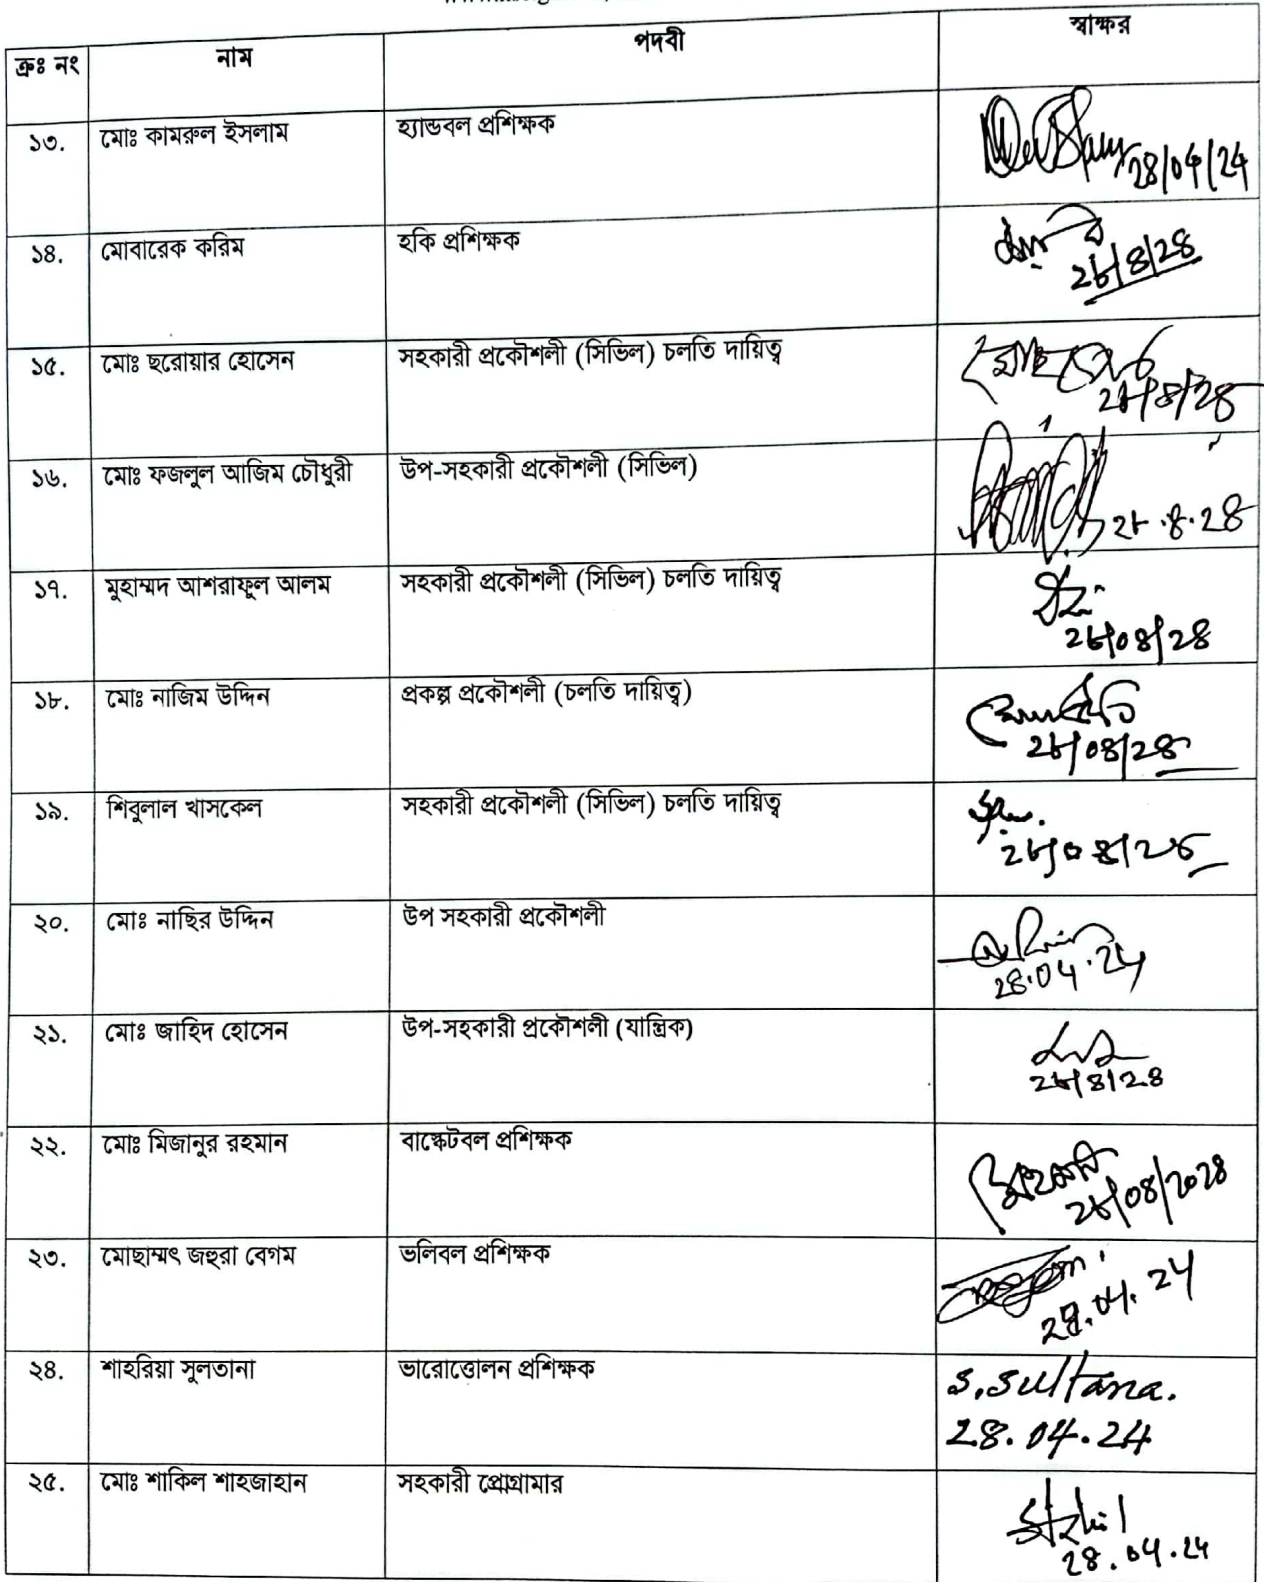 ক্রঃ নং নাম পদবী স্বাক্ষর
১৩. মোঃ কামরুল ইসলাম হ্যান্ডবল প্রশিক্ষক
28/04/24
১৪. মোবারেক করিম হকি প্রশিক্ষক
২৮/৪/২৪
১৫. মোঃ ছরোয়ার হোসেন সহকারী প্রকৌশলী (সিভিল) চলতি দায়িত্ব
২৮/৪/২৪
১৬. মোঃ ফজলুল আজিম চৌধুরী উপ-সহকারী প্রকৌশলী (সিভিল)
২৮.৪.২৪
১৭. মুহাম্মদ আশরাফুল আলম সহকারী প্রকৌশলী (সিভিল) চলতি দায়িত্ব
২৮/০৪/২৪
১৮. মোঃ নাজিম উদ্দিন প্রকল্প প্রকৌশলী (চলতি দায়িত্ব)
২৮/০৪/২৪
১৯. শিবুলাল খাসকেল সহকারী প্রকৌশলী (সিভিল) চলতি দায়িত্ব
২৮/০৪/২৪
২০. মোঃ নাছির উদ্দিন উপ সহকারী প্রকৌশলী
28.04.24
২১. মোঃ জাহিদ হোসেন উপ-সহকারী প্রকৌশলী (যান্ত্রিক)
২৮/৪/২৪
২২. মোঃ মিজানুর রহমান বাস্কেটবল প্রশিক্ষক
২৮/০৪/২০২৪
২৩. মোছাম্মৎ জহুরা বেগম ভলিবল প্রশিক্ষক
28.04.24
২৪. শাহরিয়া সুলতানা ভারোত্তোলন প্রশিক্ষক
S.Sultana.
28.04.24
২৫. মোঃ শাকিল শাহজাহান সহকারী প্রোগ্রামার
28.04.24